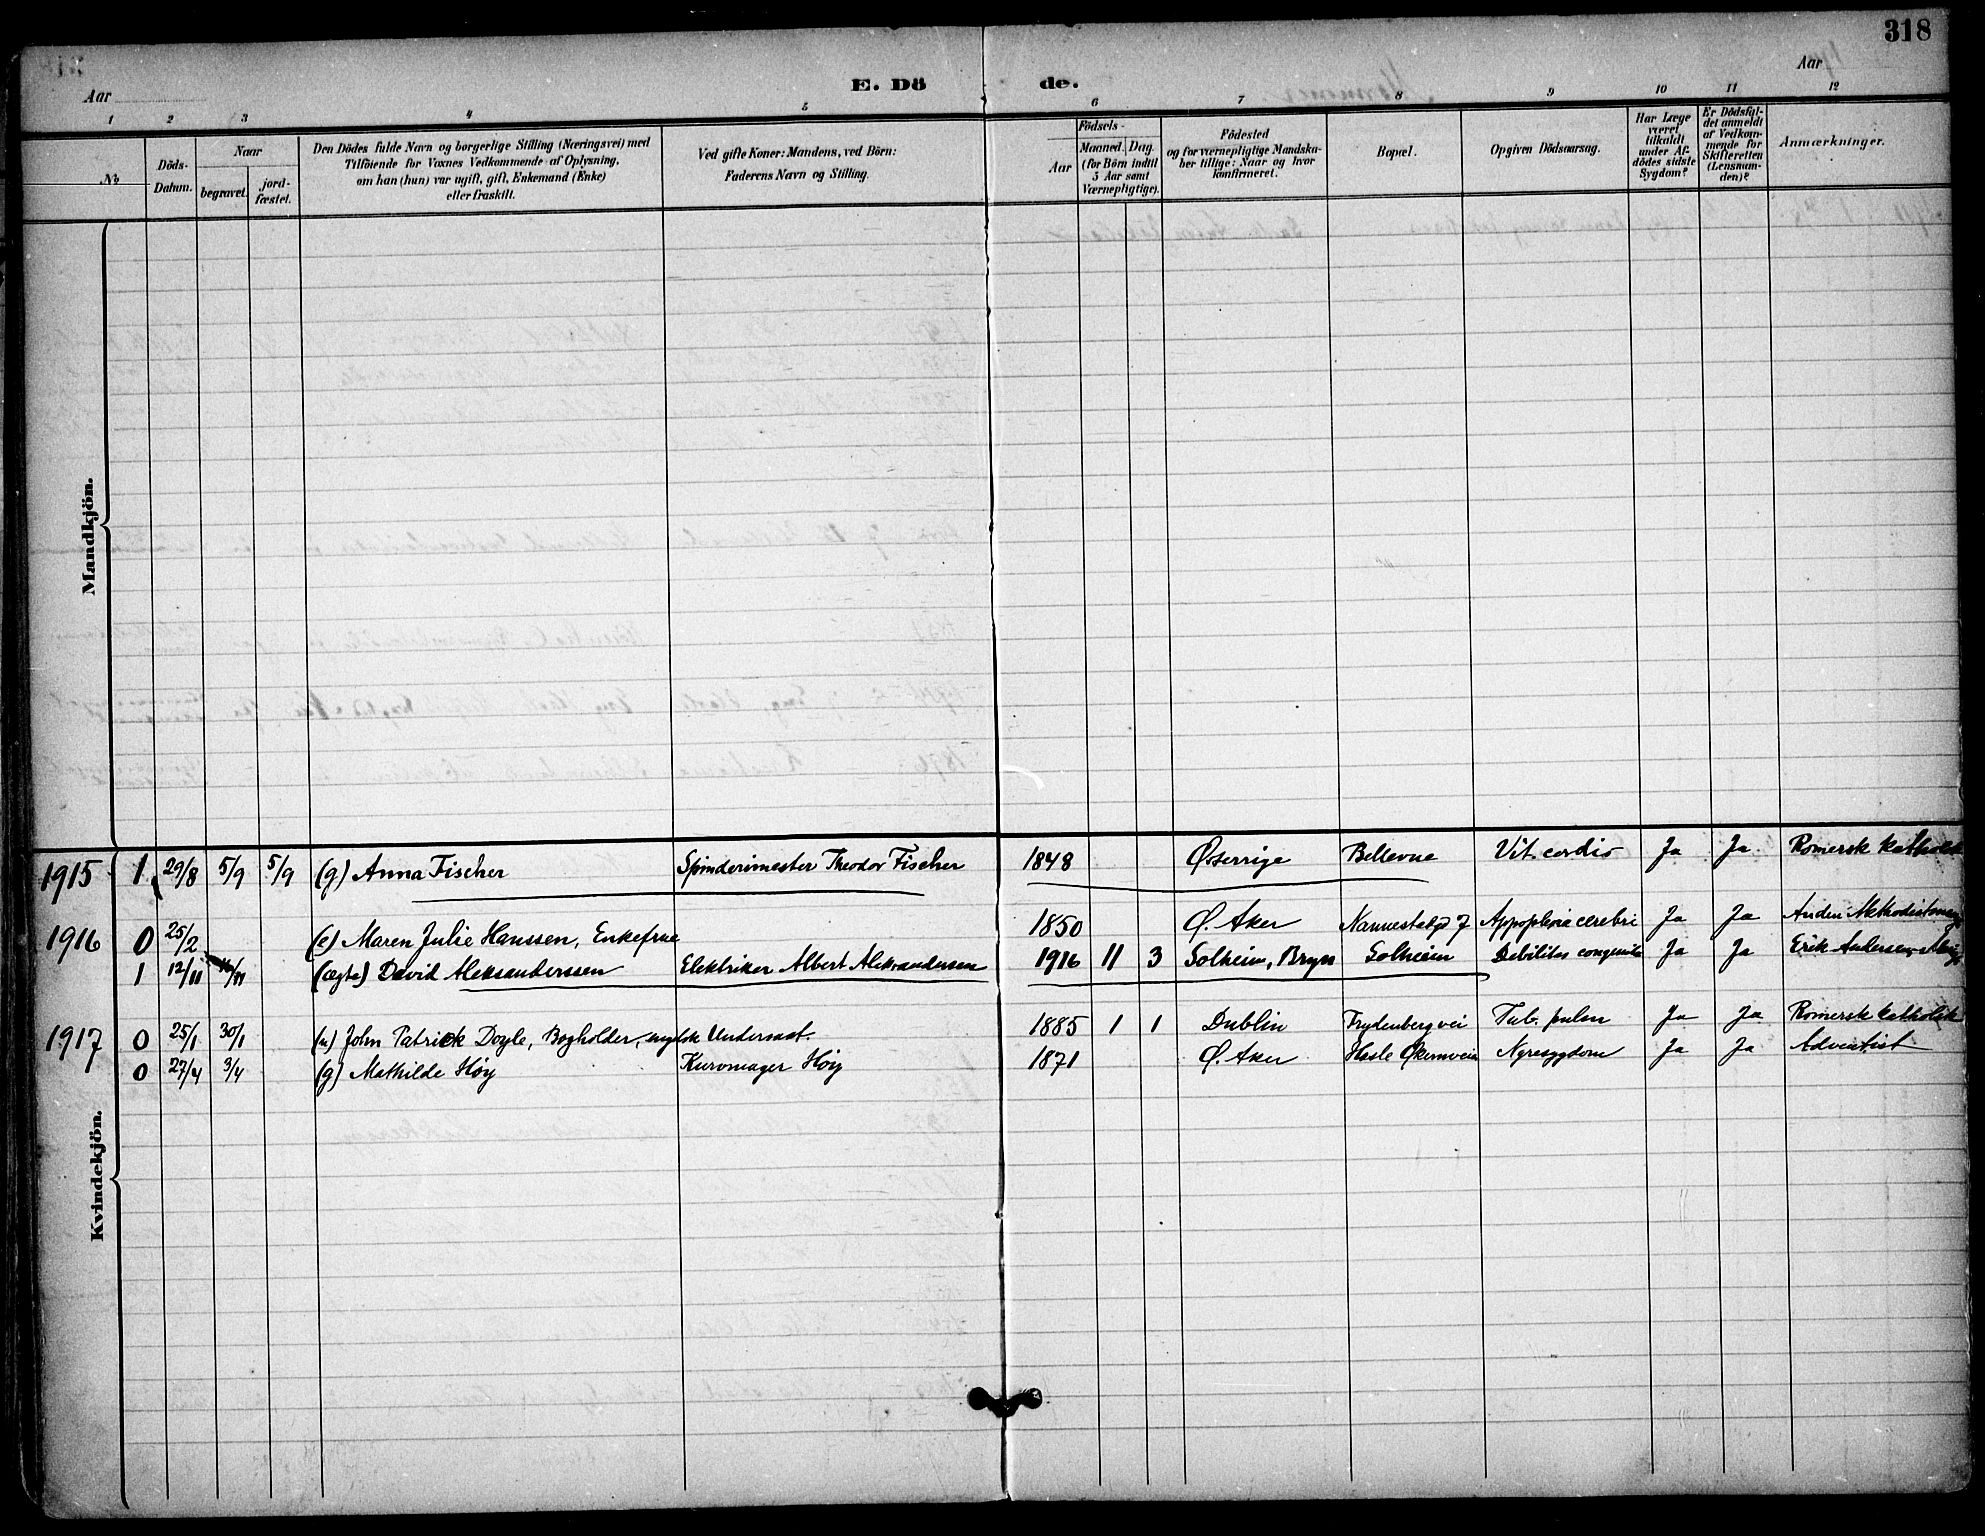 318
E. Dö de.
Aar
Aar
1 2 3 4 5 6 7 8 9 10 11 12
No
Döds-Datum.
Naar
begravet.
jord-fæstet.
Den Dödes fulde Navn og borgerlige Stilling (Næringsvei) med
Tilföiende for Voxnes Vedkommende af Oplysning,
om han (hun) var ugift, gift, Enkemand (Enke)
eller fraskilt.
Ved gifte Koner: Mandens, ved Börn:
Faderens Navn og Stilling.
Födsels-
Aar
Maaned. Dag.
(for Börn indtil
5 Aar samt
Værnepligtige).
Födested
og for værnepligtige Mandska-
ber tillige: Naar og hvor
konfirmeret.
Bopæl.
Opgiven Dödsaarsag.
Har Læge
været
tilkaldt
under Af-
dödes sidste
Sygdom?
Er Dödsfal-
det anmeldt
af Vedkom-
mende for
Skifteretten
(Lensman-
den)?
Anmærkninger.
Mandkjön.
1915 1 29/8 5/9 5/9 (g) Anna Fischer Spinderimester Theodor Fischer 1848 Østerrige Bellevue Vit. cordis Ja Ja Romersk katholsk
1916 0 25/2 (e) Maren Julie Hanssen, Enkefrue 1850 Ø. Aker Nannestadgd 7 Appoplexia cerebri Ja Ja Anden Methodistmenigh
1 12/11 16/11 (ægte) David Aleksanderssen Elektriker Albert Aleksanderssen 1916 11 3 Solheim, Bryn Solheim Debilitas congenita Ja Ja Erik Andersens Menigh
1917 0 25/1 30/1 (u) John Patrick Doyle, Bogholder, engelsk Undersaat. 1885 1 1 Dublin Frydenbergvei Tub. pulm Ja Ja Romersk katholik
0 27/4 3/4 (g) Mathilde Høy Kurvmager Høy 1871 Ø. Aker Hasle Økernveien Nyresygdom Ja Ja Adventist
Kvindekjön.